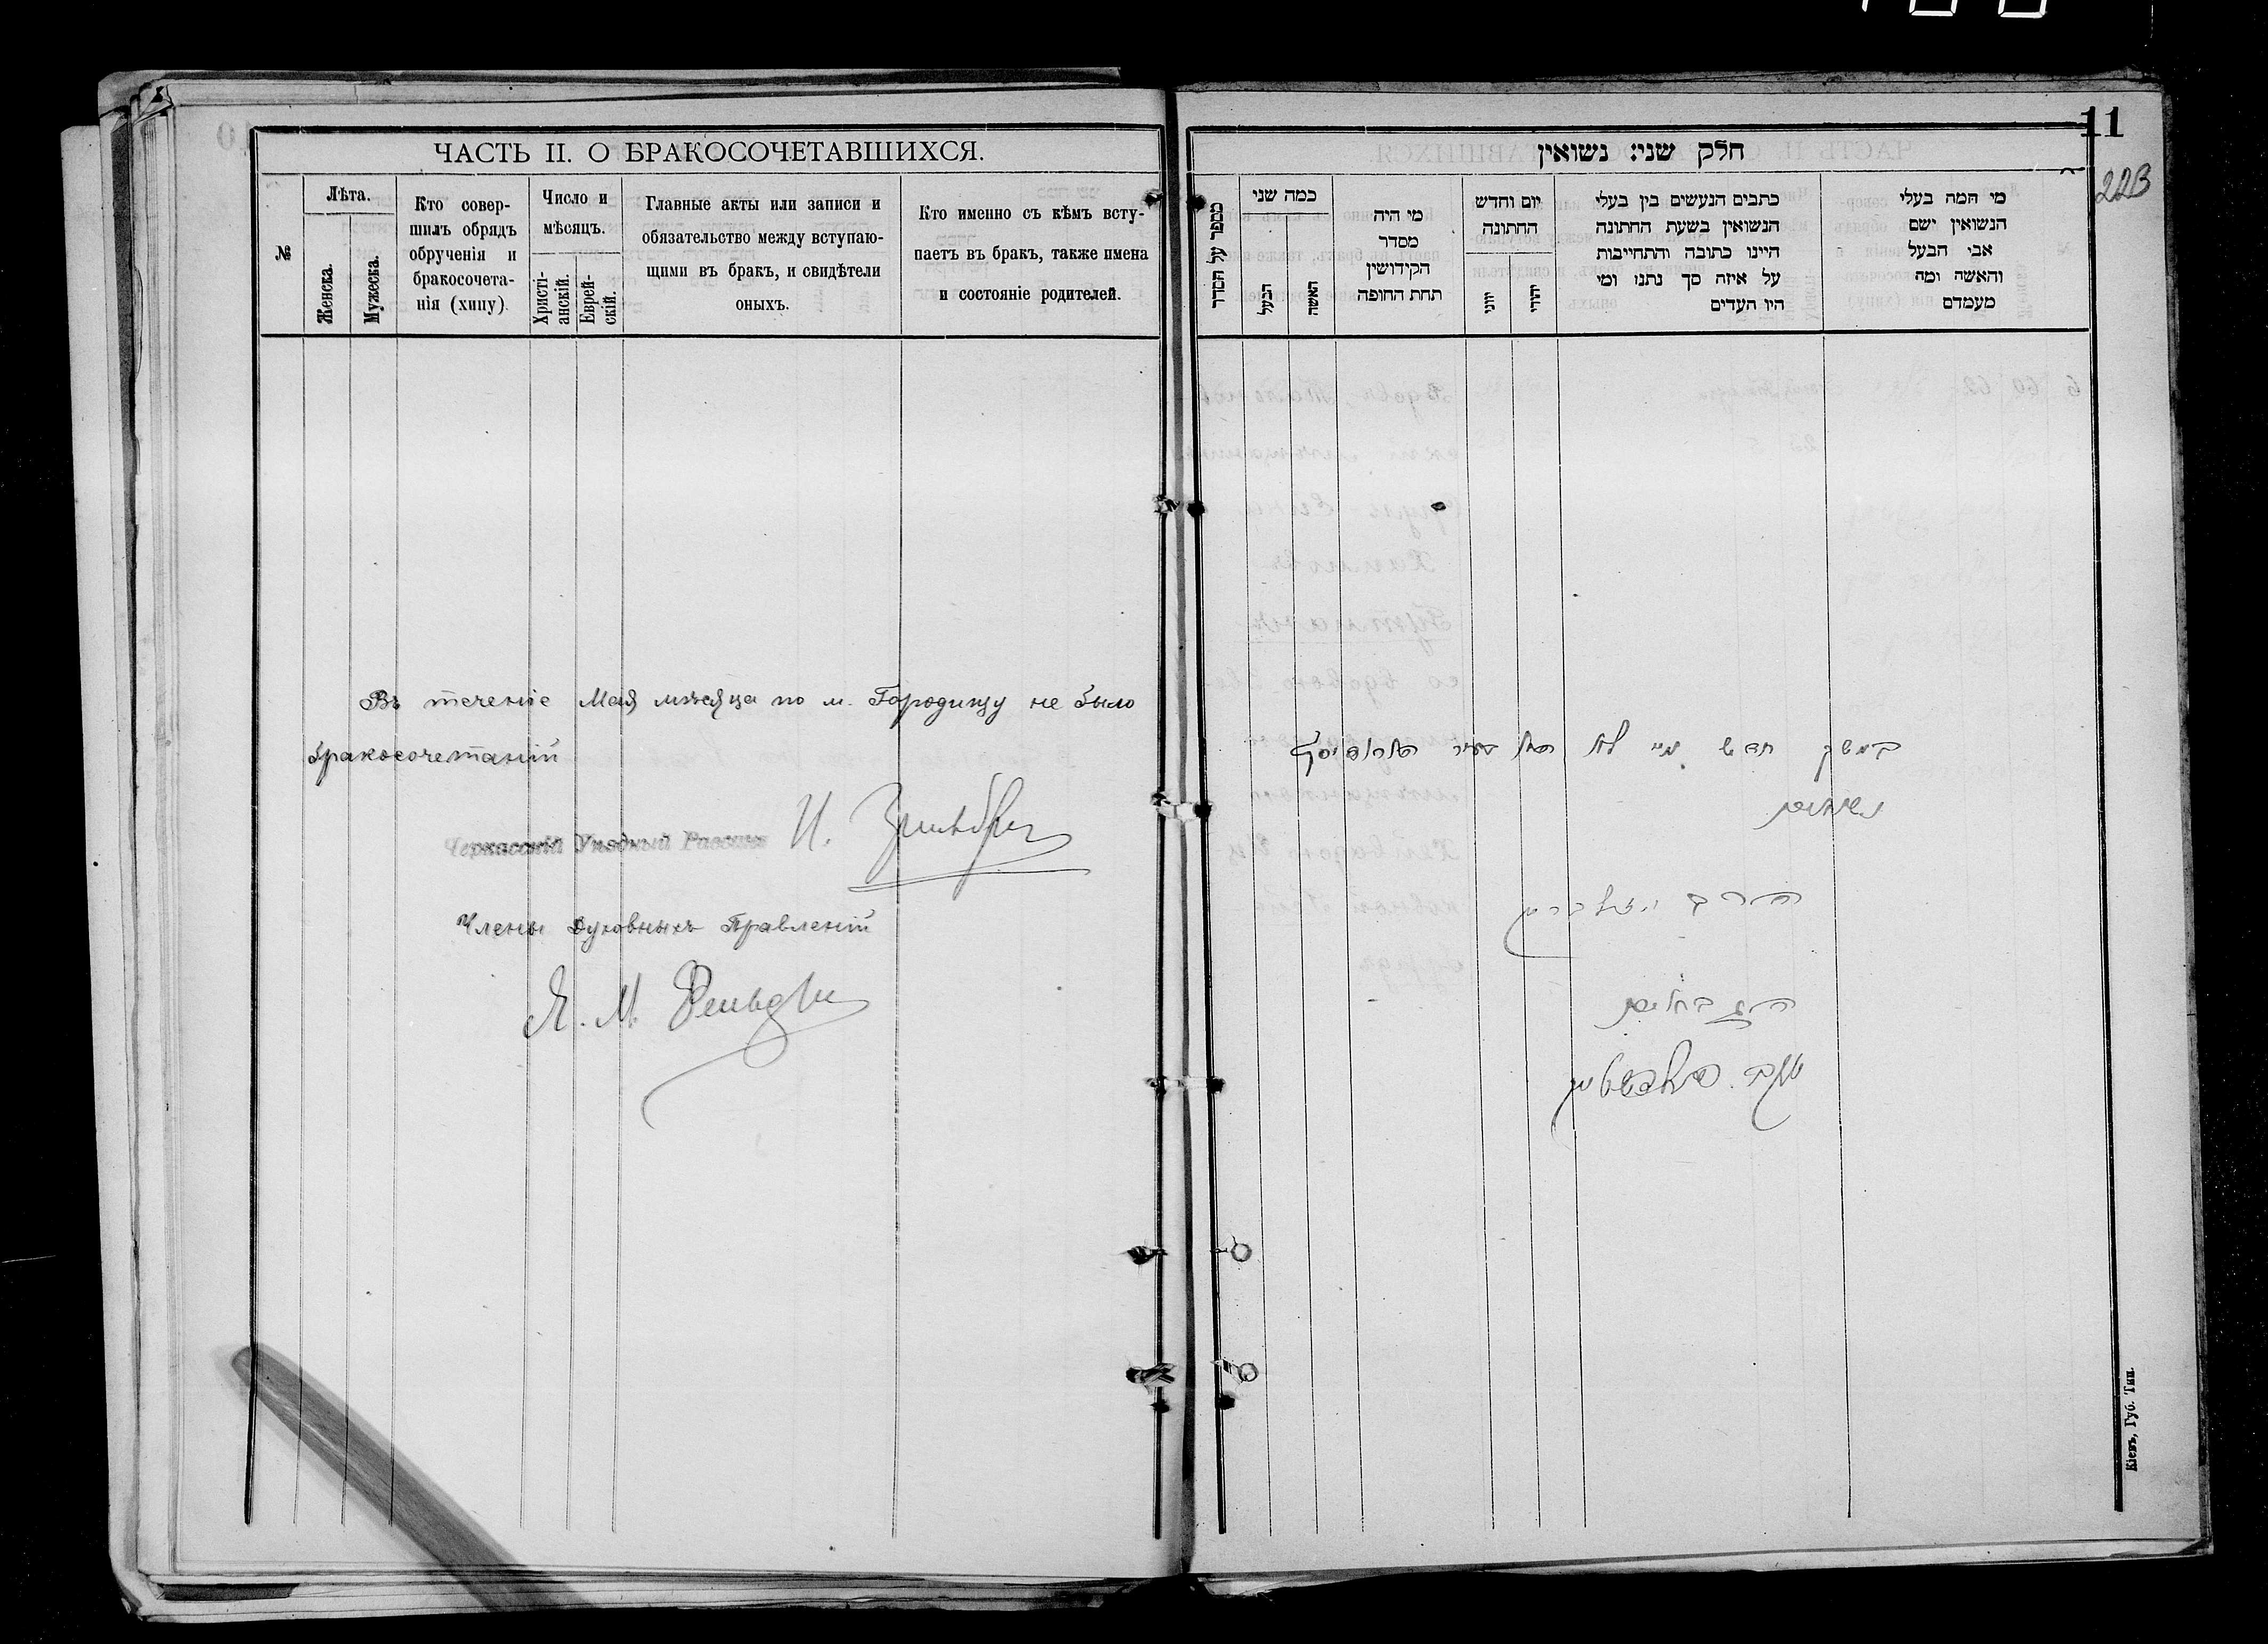 ЧАСТЬ II. О БРАКОСОЧЕТАВШИХСЯ.
№
Лѣта.
Женска.
Мужеска.
Кто совер-
шилъ обрядъ
обрученія и
бракосочета-
нія (хипу).
Число и
мѣсяцъ.
Христі-
анскій.
Еврей-
скій.
Главные акты или записи и
обязательство между вступаю-
щими въ бракъ, и свидѣтели
оныхъ.
Кто именно съ кѣмъ всту-
паетъ въ бракъ, также имена
и состояніе родителей.
Въ теченіе Мая мѣсяца по м. Городищу не было
бракосочетаній
Черкасскій Уѣздный Раввинъ И.
Члены Духовныхъ Правленій
Я. М.
11
223
חלק שני: נשואין
מספר על הסדר
כמה שני
הבעל
האשה
מי היה
מסדר
הקידושין
תחת החופה
יום וחדש
החתונה
יוני
יהודי
כתבים הנעשים בין בעלי
הנשואין בשעת החתונה
היינו כתובה והתחייבות
על איזה סך נתנו ומי
היו העדים
מי המה בעלי
הנשואין ישם
אבי הבעל
והאשה ומה
מעמדם
במשך חדש מיי לא היו בעיר
נשואים
הרב
הגבאים
Кіевъ, Губ. Тип.